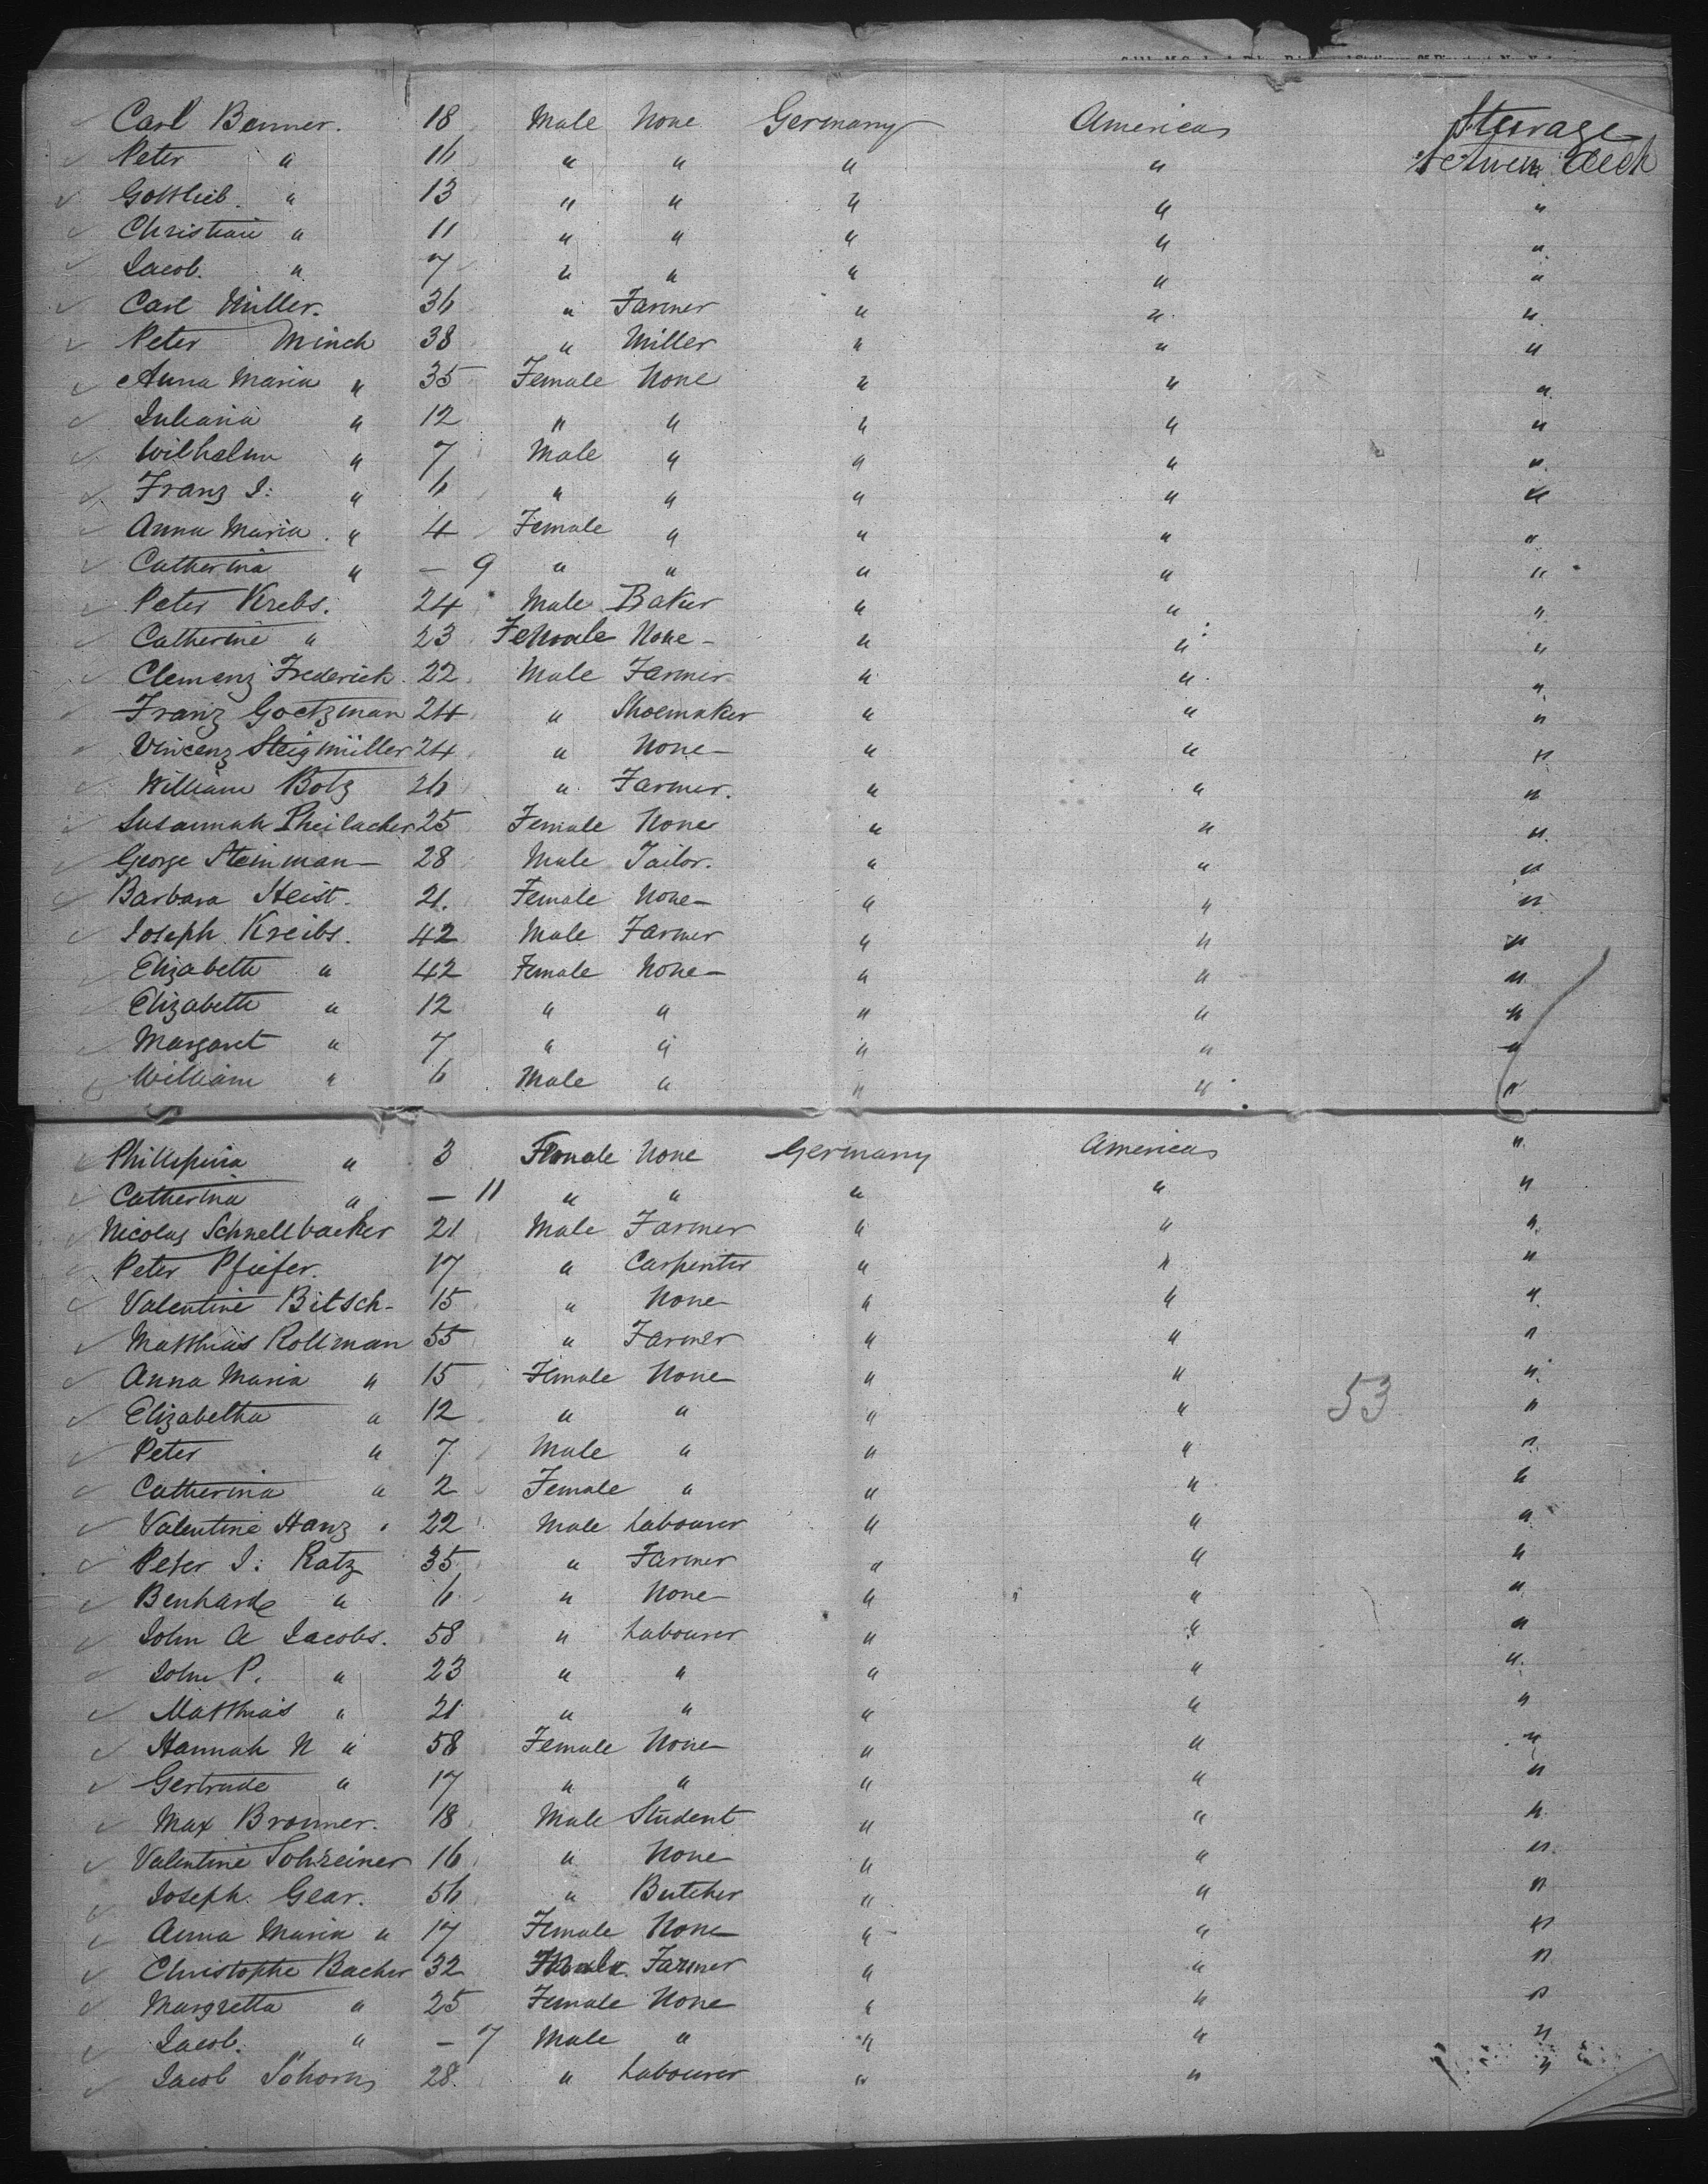 Carl Benner. 18 Male None Germany America Steerage
Peter " 16 " " " " between deck
Gottlieb. " 13 " " " " "
Christian " 11 " " " " "
Jacob. " 7 " " " " "
Carl Miller. 36 " Farmer " " "
Peter Minch 38 " Miller " " "
Anna Maria " 35 Female None " " "
Juliana " 12 " " " " "
Wilhelm " 7 Male " " " "
Franz J: " 6 " " " " "
Anna Maria. " 4 Female " " " "
Catherina " — 9 " " " " "
Peter Krebs. 24 Male Baker " " "
Catherine " 23 Female None — " " "
Clemenz Frederick. 22 Male Farmer " " "
Franz Goetzman 24 " Shoemaker " " "
Vincenz Steigmüller 24 " None — " " "
William Botz 26 " Farmer. " " "
Susannah Pheilacher 25 Female None " " "
George Steinman — 28 Male Tailor. " " "
Barbara Heist. 21. Female None — " " "
Joseph Kreibs. 42 Male Farmer " " "
Elizabeth " 42 Female None — " " "
Elizabeth " 12 " " " " "
Margaret " 7 " " " " "
William " 6 Male " " " "
Phillipina " 3 Female None Germany America "
Catherina " — 11 " " " " "
Nicolas Schnellbacker 21 Male Farmer " " "
Peter Pfiefer. 17 " Carpenter " " "
Valentine Bitsch - 15 " None " " "
Matthias Rollman 55 " Farmer " " "
Anna Maria " 15 Female None " " "
Elizabetha " 12 " " " " 53 "
Peter " 7 Male " " " "
Catherina " 2 Female " " " "
Valentine Hanz 22 Male Labourer " " "
Peter J: Ratz 35 " Farmer " " "
Benhard " 6 " None " " "
John A Jacobs. 58 " Labourer " " "
John P. " 23 " " " " "
Matthias " 21 " " " " "
Hannah N " 58 Female None " " "
Gertrude " 17 " " " " "
Max Bronner. 18 Male Student " " "
Valentine Schreiner 16 " None " " "
Joseph Gear. 56 " Butcher " " "
Anna Maria " 17 Female None " " "
Christophe Bacher 32 Male Farmer " " "
Margretta " 25 Female None " " "
Jacob. " — 7 Male " " " "
Jacob Schorn 28. " Labourer " " "